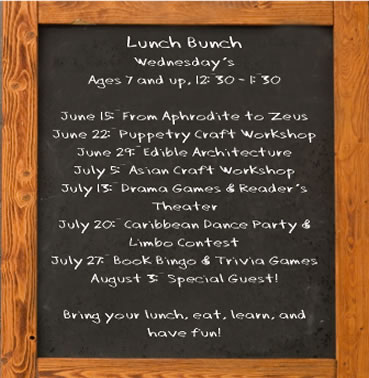 Lunch Bunch
Wednesday's
Ages 7 and up, 12:30 - 1:30
June 15:¨ From Aphrodite to Zeus
June 22:¨ Puppetry Craft Workshop
June 29:¨ Edible Architecture
July 5:¨ Asian Craft Workshop
July 13:¨ Drama Games & Reader's
Theater
July 20:¨ Caribbean Dance Party &
Limbo Contest
July 27:¨ Book Bingo & Trivia Games
August 3:¨ Special Guest!
Bring your lunch, eat, learn, and
have fun!